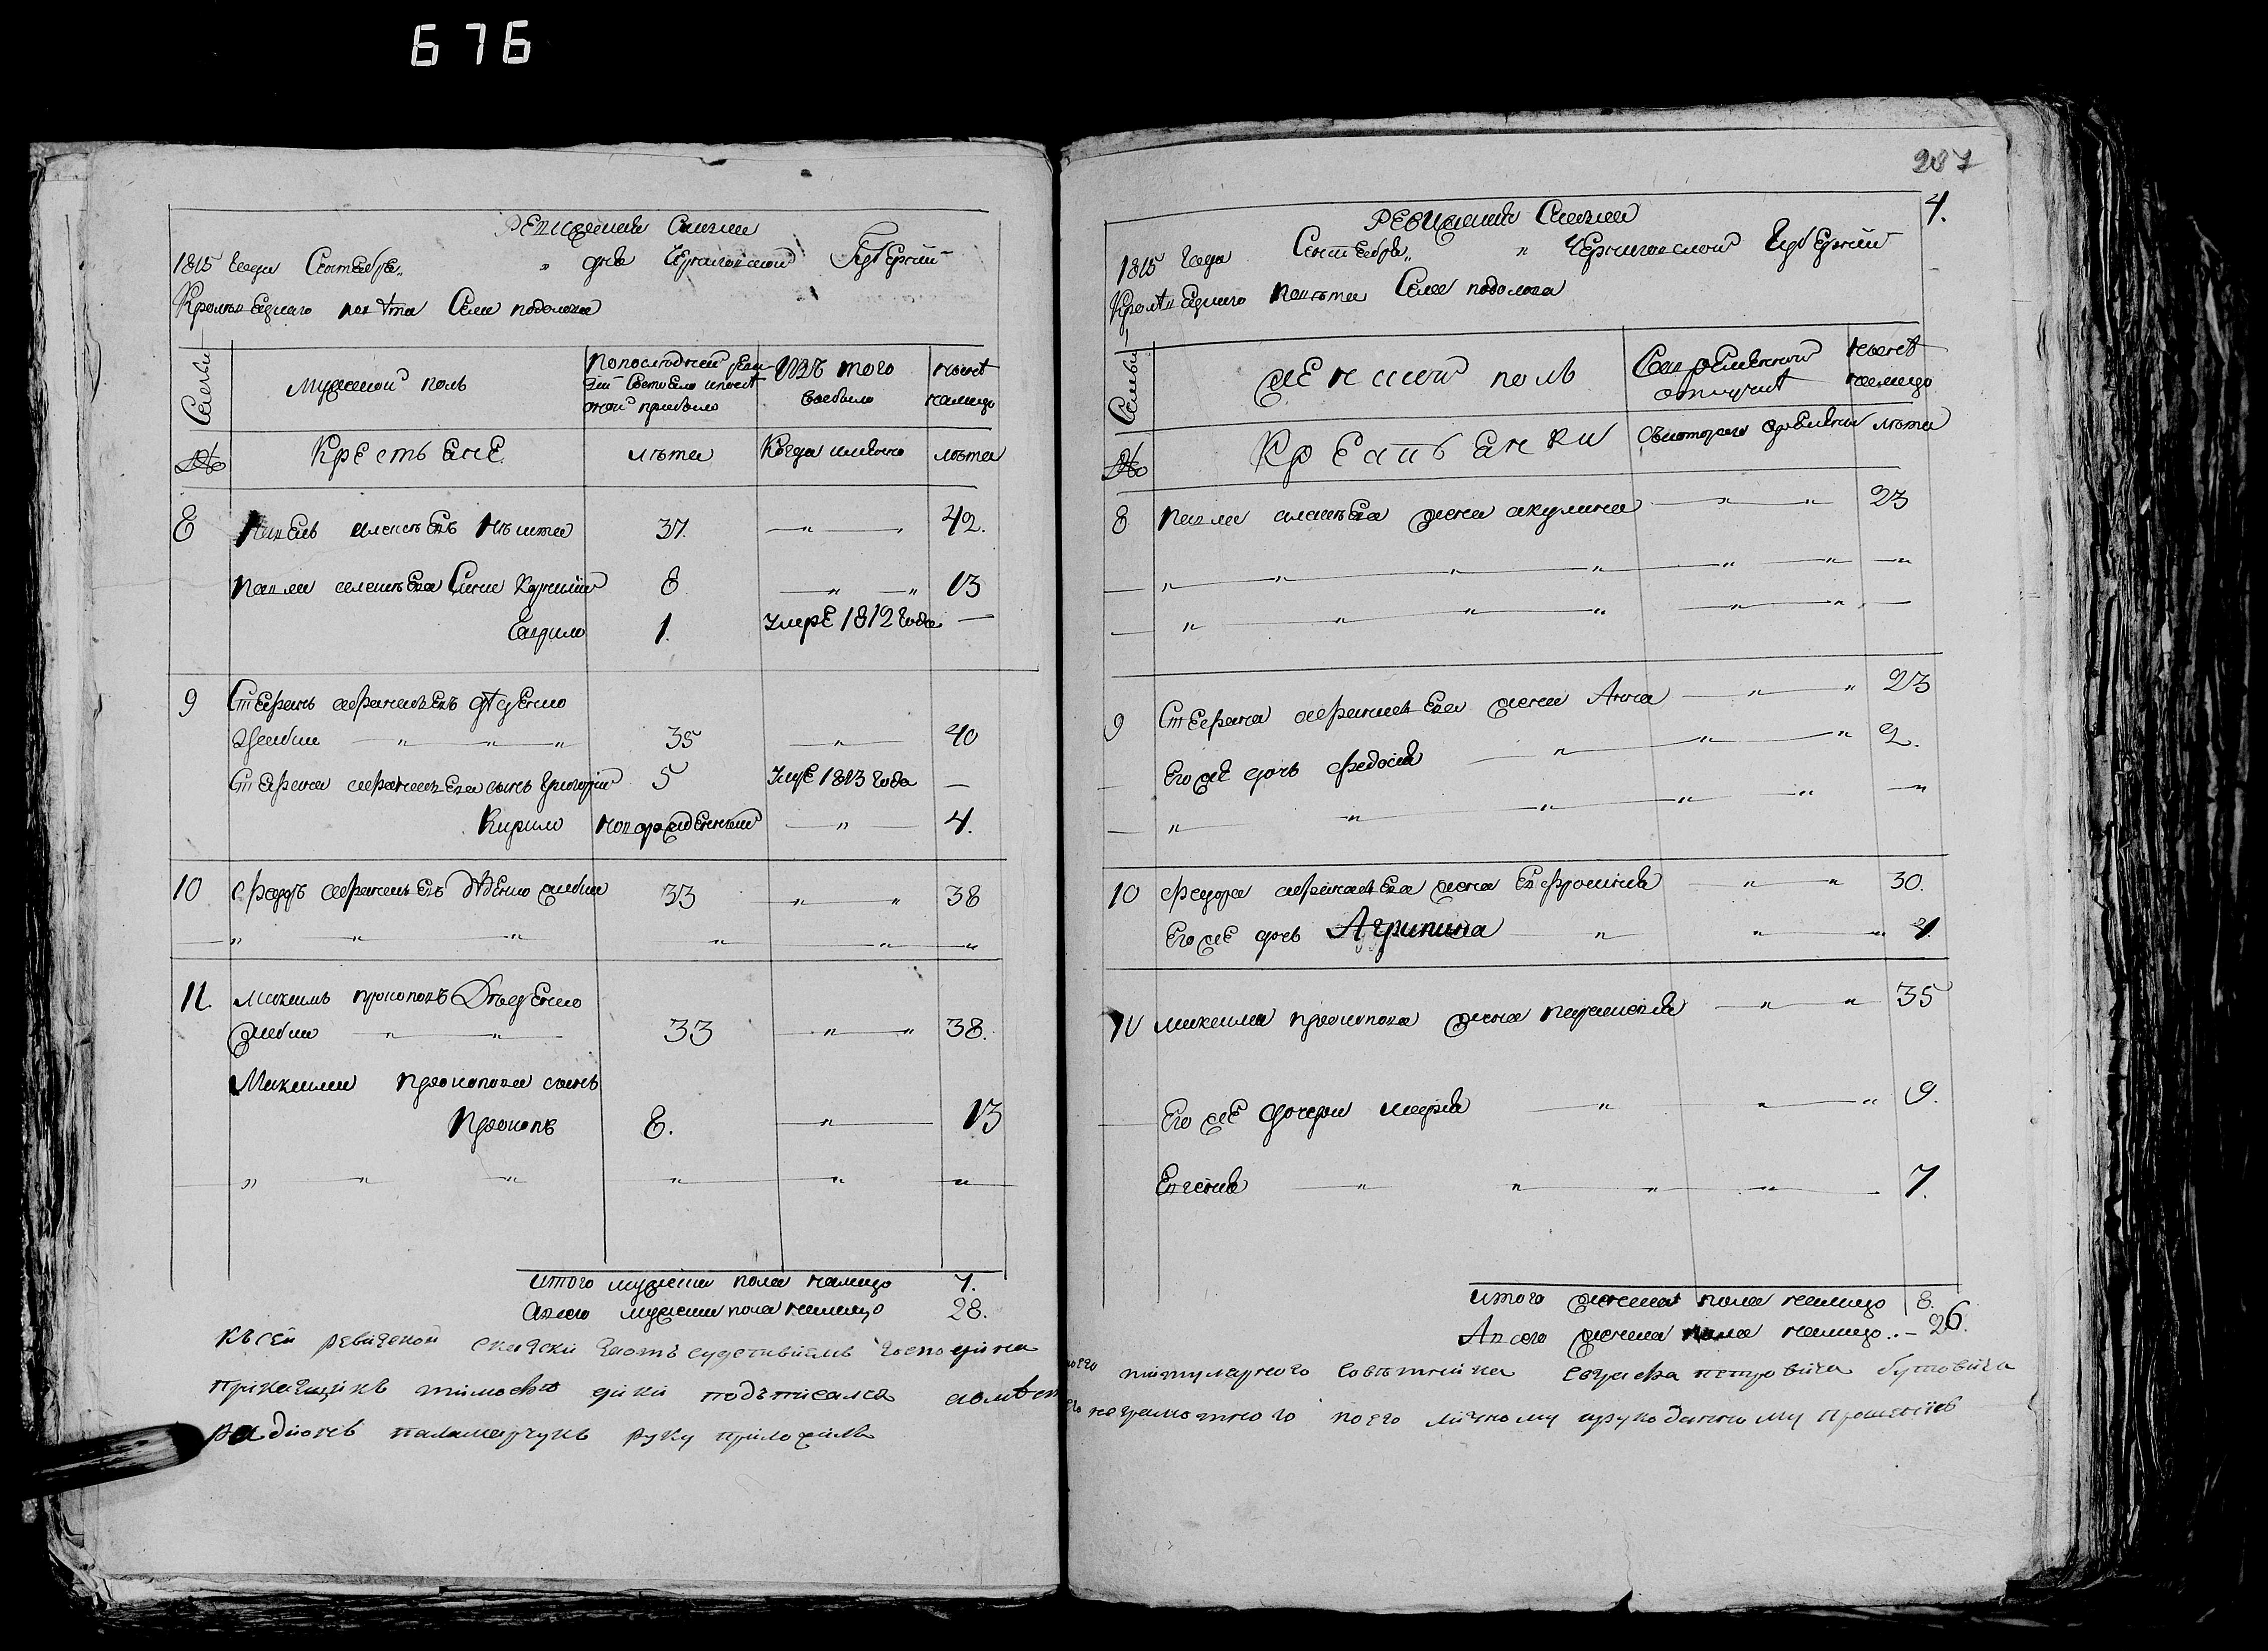 676
Ревизская Сказка
1815 года Сентебря „ дня Черниговской Губернии
Кролевецкаго повѣта Села подолова
Семьи
мужеской полъ
По последней реви-
зіи состояло и после
оной прибыло
Изъ того
выбыло
ныне
налицо
№
Крестьяне
лѣта
Когда именно
лѣта
8 Павелъ алексѣевъ 37. — „ — 42.
Павла алексѣева сыны 8 — „ — „ 13
Гаврило 1. Умре 1812 года —
9 Стефанъ афанасьевъ дѣденко
Жабки — „ — „ — „ 35 — „ — 40
Стефана афанасьева сынъ Григорій 5 Умре 1813 года —
Кирило новорожденный — „ — 4.
10 Федоръ афанасьевъ дѣденко жабки 33 „ — „ 38
— „ — „ — „ — „ — „ — „
11. Максимъ прокоповъ Дѣденко
жабки — „ — „ — 33 — „ — „ 38.
Максима прокопова сынъ
Прокопъ 8. — „ — 13
— „ — „ — „ — „ — „ — „
итого мужеска пола налицо 7.
Авсего мужеска пола налицо 28.
Къ сей ревизской сказки вмѣсто господина
приказщикъ тимофѣй дікій подъписался авмѣст
радионъ паламарчукъ руку приложилъ
287
4.
Ревизская Сказка
1815 года Сентебря „ „ Черниговской Губернии
Кролевецкаго повѣта Села подолова
Семьи
женской полъ
Во временной
отлучке
ныне
налицо
№
Крестьянки
Съкоторого времяни лѣта
8 Павла алексѣева жена акулина — „ — „ — 23
— „ — „ — „ — „ — „ — „ — „
— „ — „ — „ — „ — „ — „ —
9 Стефана афанасьева жена Анна — „ — „ 23
Его же дочь Федосія — „ — „ — „ 2.
— „ — „ — „ — „ — „ — „
10 Федора афанасьева жена Ефросинія — „ — „ 30.
Его же дочь Агрипина — „ — „ — „ 4.
11 Максима прокопова жена параскевія — „ — „ 35
Его же дочери марія — „ — „ — „ 9.
Евгенія — „ — „ — „ — „ — 7.
итого женска пола налицо 8.
Авсего женска пола налицо.. — 26.
моего титулярного советнийка петровича бутовича
его неграмотного по его личному ирукоданному прошенію